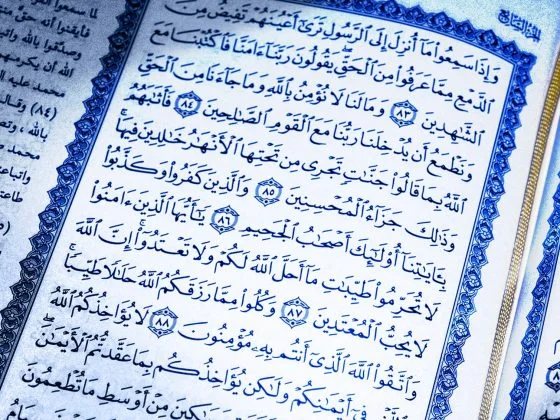 الجزء السابع
وَإِذَا سَمِعُوا۟ مَآ أُنزِلَ إِلَى ٱلرَّسُولِ تَرَىٰٓ أَعْيُنَهُمْ تَفِيضُ مِنَ
ٱلدَّمْعِ مِمَّا عَرَفُوا۟ مِنَ ٱلْحَقِّ ۖ يَقُولُونَ رَبَّنَآ ءَامَنَّا فَٱكْتُبْنَا مَعَ
ٱلشَّٰهِدِينَ ٨٣ وَمَا لَنَا لَا نُؤْمِنُ بِٱللَّهِ وَمَا جَآءَنَا مِنَ ٱلْحَقِّ
وَنَطْمَعُ أَن يُدْخِلَنَا رَبُّنَا مَعَ ٱلْقَوْمِ ٱلصَّٰلِحِينَ ٨٤ فَأَثَٰبَهُمُ
ٱللَّهُ بِمَا قَالُوا۟ جَنَّٰتٍ تَجْرِى مِن تَحْتِهَا ٱلْأَنْهَٰرُ خَٰلِدِينَ فِيهَا ۚ
وَذَٰلِكَ جَزَآءُ ٱلْمُحْسِنِينَ ٨٥ وَٱلَّذِينَ كَفَرُوا۟ وَكَذَّبُوا۟
بِـَٔايَٰتِنَآ أُو۟لَٰٓئِكَ أَصْحَٰبُ ٱلْجَحِيمِ ٨٦ يَٰٓأَيُّهَا ٱلَّذِينَ ءَامَنُوا۟
لَا تُحَرِّمُوا۟ طَيِّبَٰتِ مَآ أَحَلَّ ٱللَّهُ لَكُمْ وَلَا تَعْتَدُوٓا۟ ۚ إِنَّ ٱللَّهَ
لَا يُحِبُّ ٱلْمُعْتَدِينَ ٨٧ وَكُلُوا۟ مِمَّا رَزَقَكُمُ ٱللَّهُ حَلَٰلًا طَيِّبًا ۚ
وَٱتَّقُوا۟ ٱللَّهَ ٱلَّذِىٓ أَنتُم بِهِۦ مُؤْمِنُونَ ٨٨ لَا يُؤَاخِذُكُمُ ٱللَّهُ
فِىٓ أَيْمَٰنِكُمْ وَلَٰكِن يُؤَاخِذُكُم بِمَا عَقَّدتُّمُ ٱلْأَيْمَٰنَ ۖ
مِنْ أَوْسَطِ مَا تُطْعِمُونَ
لما سمعوا
فأيقنوا أنه حق
وصدقوا بالله
الله أن يكرمهم
محمد عليه
(٨٤) وقال
بالله ،
محمد